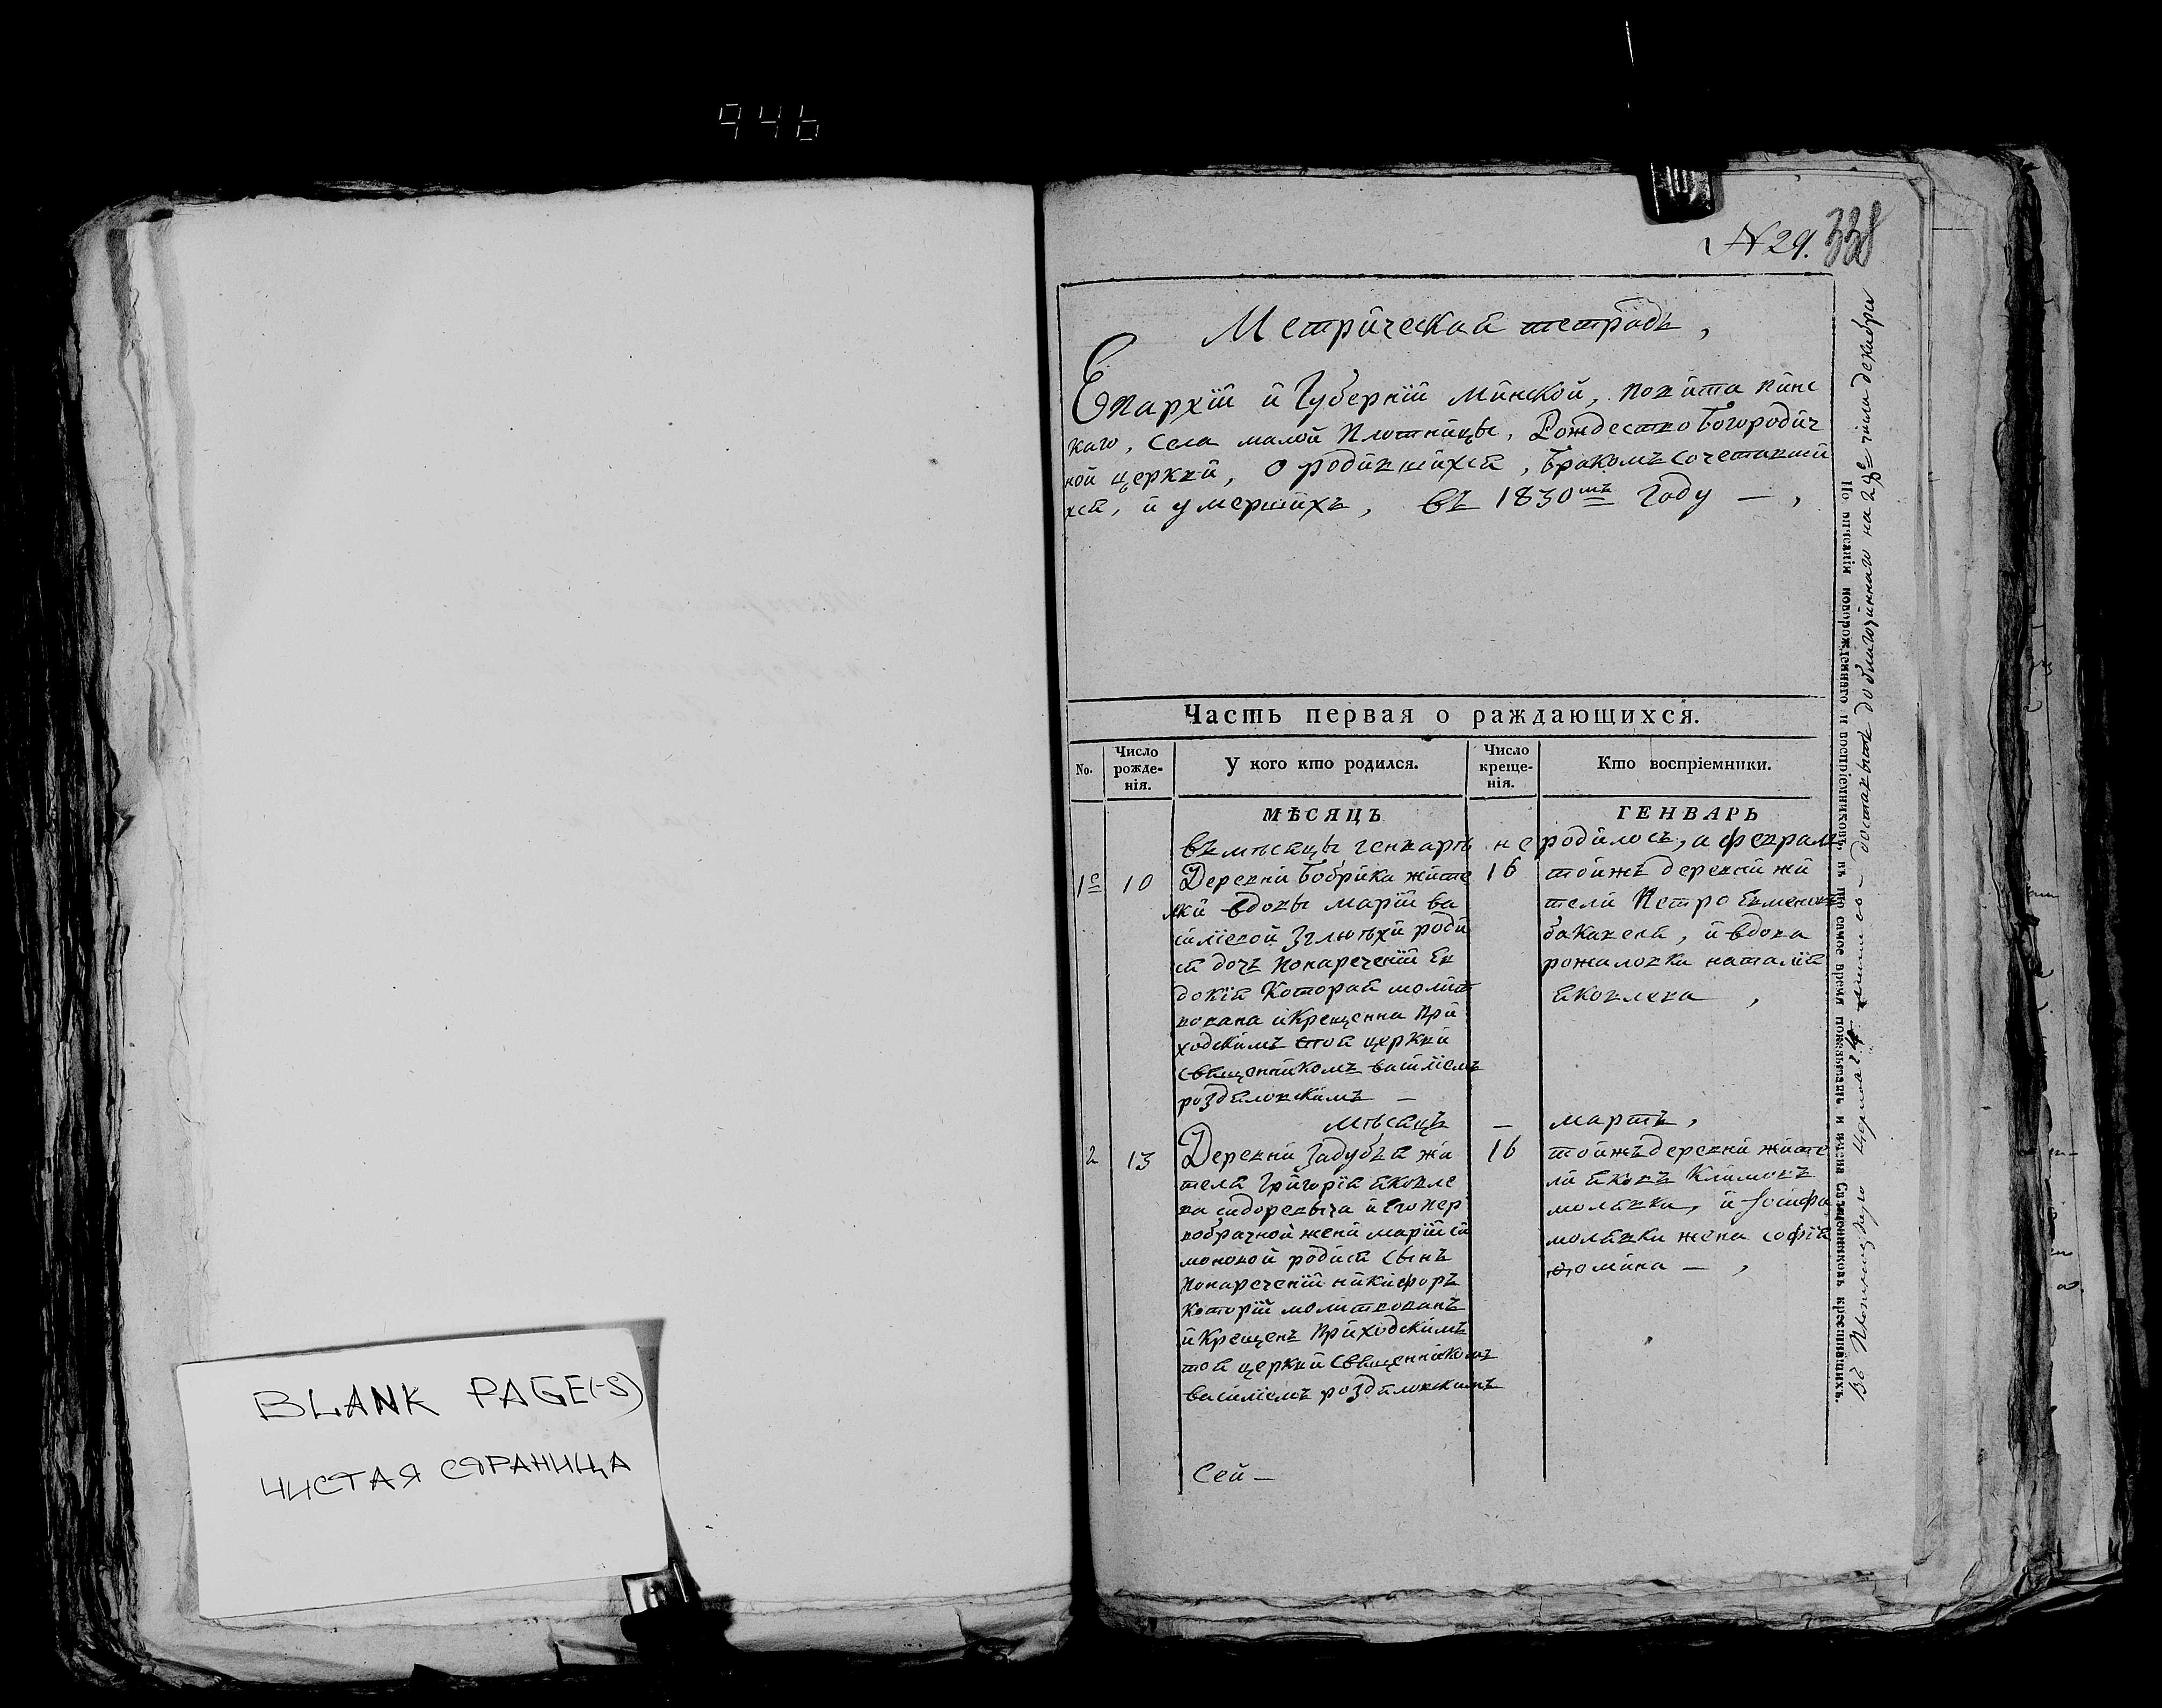 946
BLANK PAGE(-S)
ЧИСТАЯ СТРАНИЦА
N 29. 338
Метрическая тетрадь,
Епархїи и Губернїи Минской, повита Пинс
каго, Села малой Плотницы, Рождество Богородич
ной церкви, о родившихся, бракомъ сочетавши
хся, и умершихъ, въ 1830мъ Году — ,
Часть первая о раждающихся.
No.
Число рожде-нія.
У кого кто родился.
Число креще-нія.
Кто воспріемники.
МѢСЯЦЪ ГЕНВАРЬ
въ мѣсяцы генварѣ не родилось, а феврал
1е 10
Деревни Бобрика жите
лки вдовы Марїи Ва
силїевой
роди
ся дочъ понареченїи Ев
докїя Которая молит
вована и Крещенна При
ходскимъ тоя церкви
священникомъ Василїемъ
роздяловскимъ —
16
тоижъ деревни жи
тели Петро
и вдова
наталїя
Яковлева ,
мѣсяцъ — мартъ,
2 13
Деревни Задубъя жи
теля Григорїя Яковле
ва сидоревича и его пер
вобрачной жени Марїи си
моновой родися сынъ
понареченїи никифоръ
Которїи молитвованъ
и Крещенъ Приходскимъ
тоя церкви священникомъ
Василїемъ роздяловскимъ
16
тоижъ деревни жите
ли Яковъ Климовъ
молявка, и Iосифа
молявки жена софїя
фомина — ,
Сей —
По вписаніи новорожденнаго и воспріемниковъ, въ то самое время показывать и имена Священниковъ крестившихъ.
до благочиннаго на 28е числа декабря